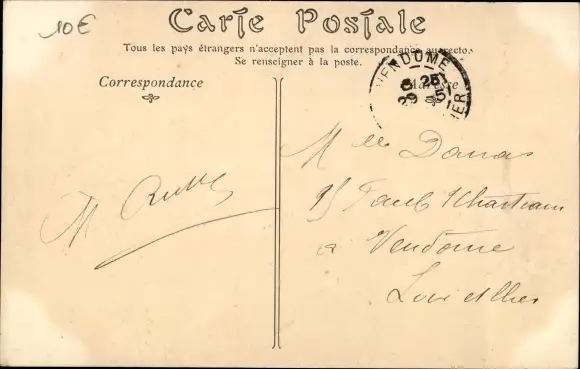 10€
Carte Postale
Tous les pays étrangers n'acceptent pas la correspondance au recto.
Se renseigner à la poste.
Correspondance
Adresse
VENDOME
25
5
M
Melles
Faub Chartrain
a Vendôme
Loir et Cher